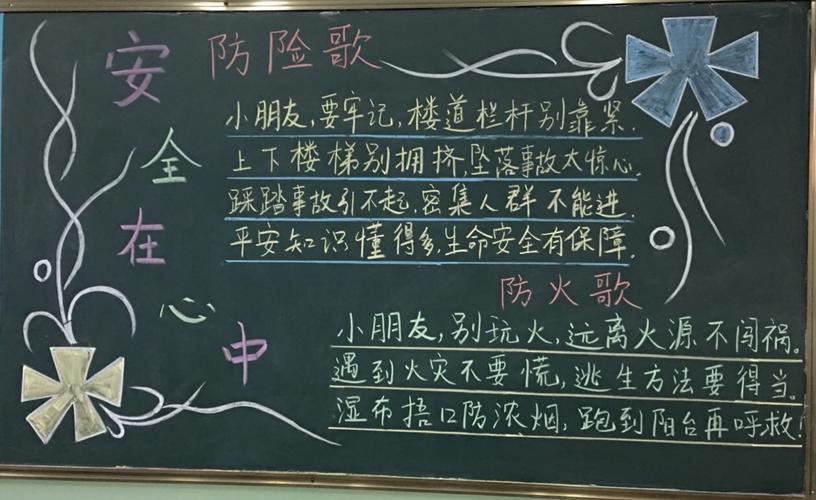 安全在心中
防险歌
小朋友,要牢记,楼道栏杆别靠紧.
上下楼梯别拥挤,坠落事故太惊心.
踩踏事故引不起,密集人群不能进.
平安知识懂得多,生命安全有保障.
防火歌
小朋友,别玩火,远离火源不闯祸。
遇到火灾不要慌,逃生方法要得当。
湿布捂口防浓烟,跑到阳台再呼救!